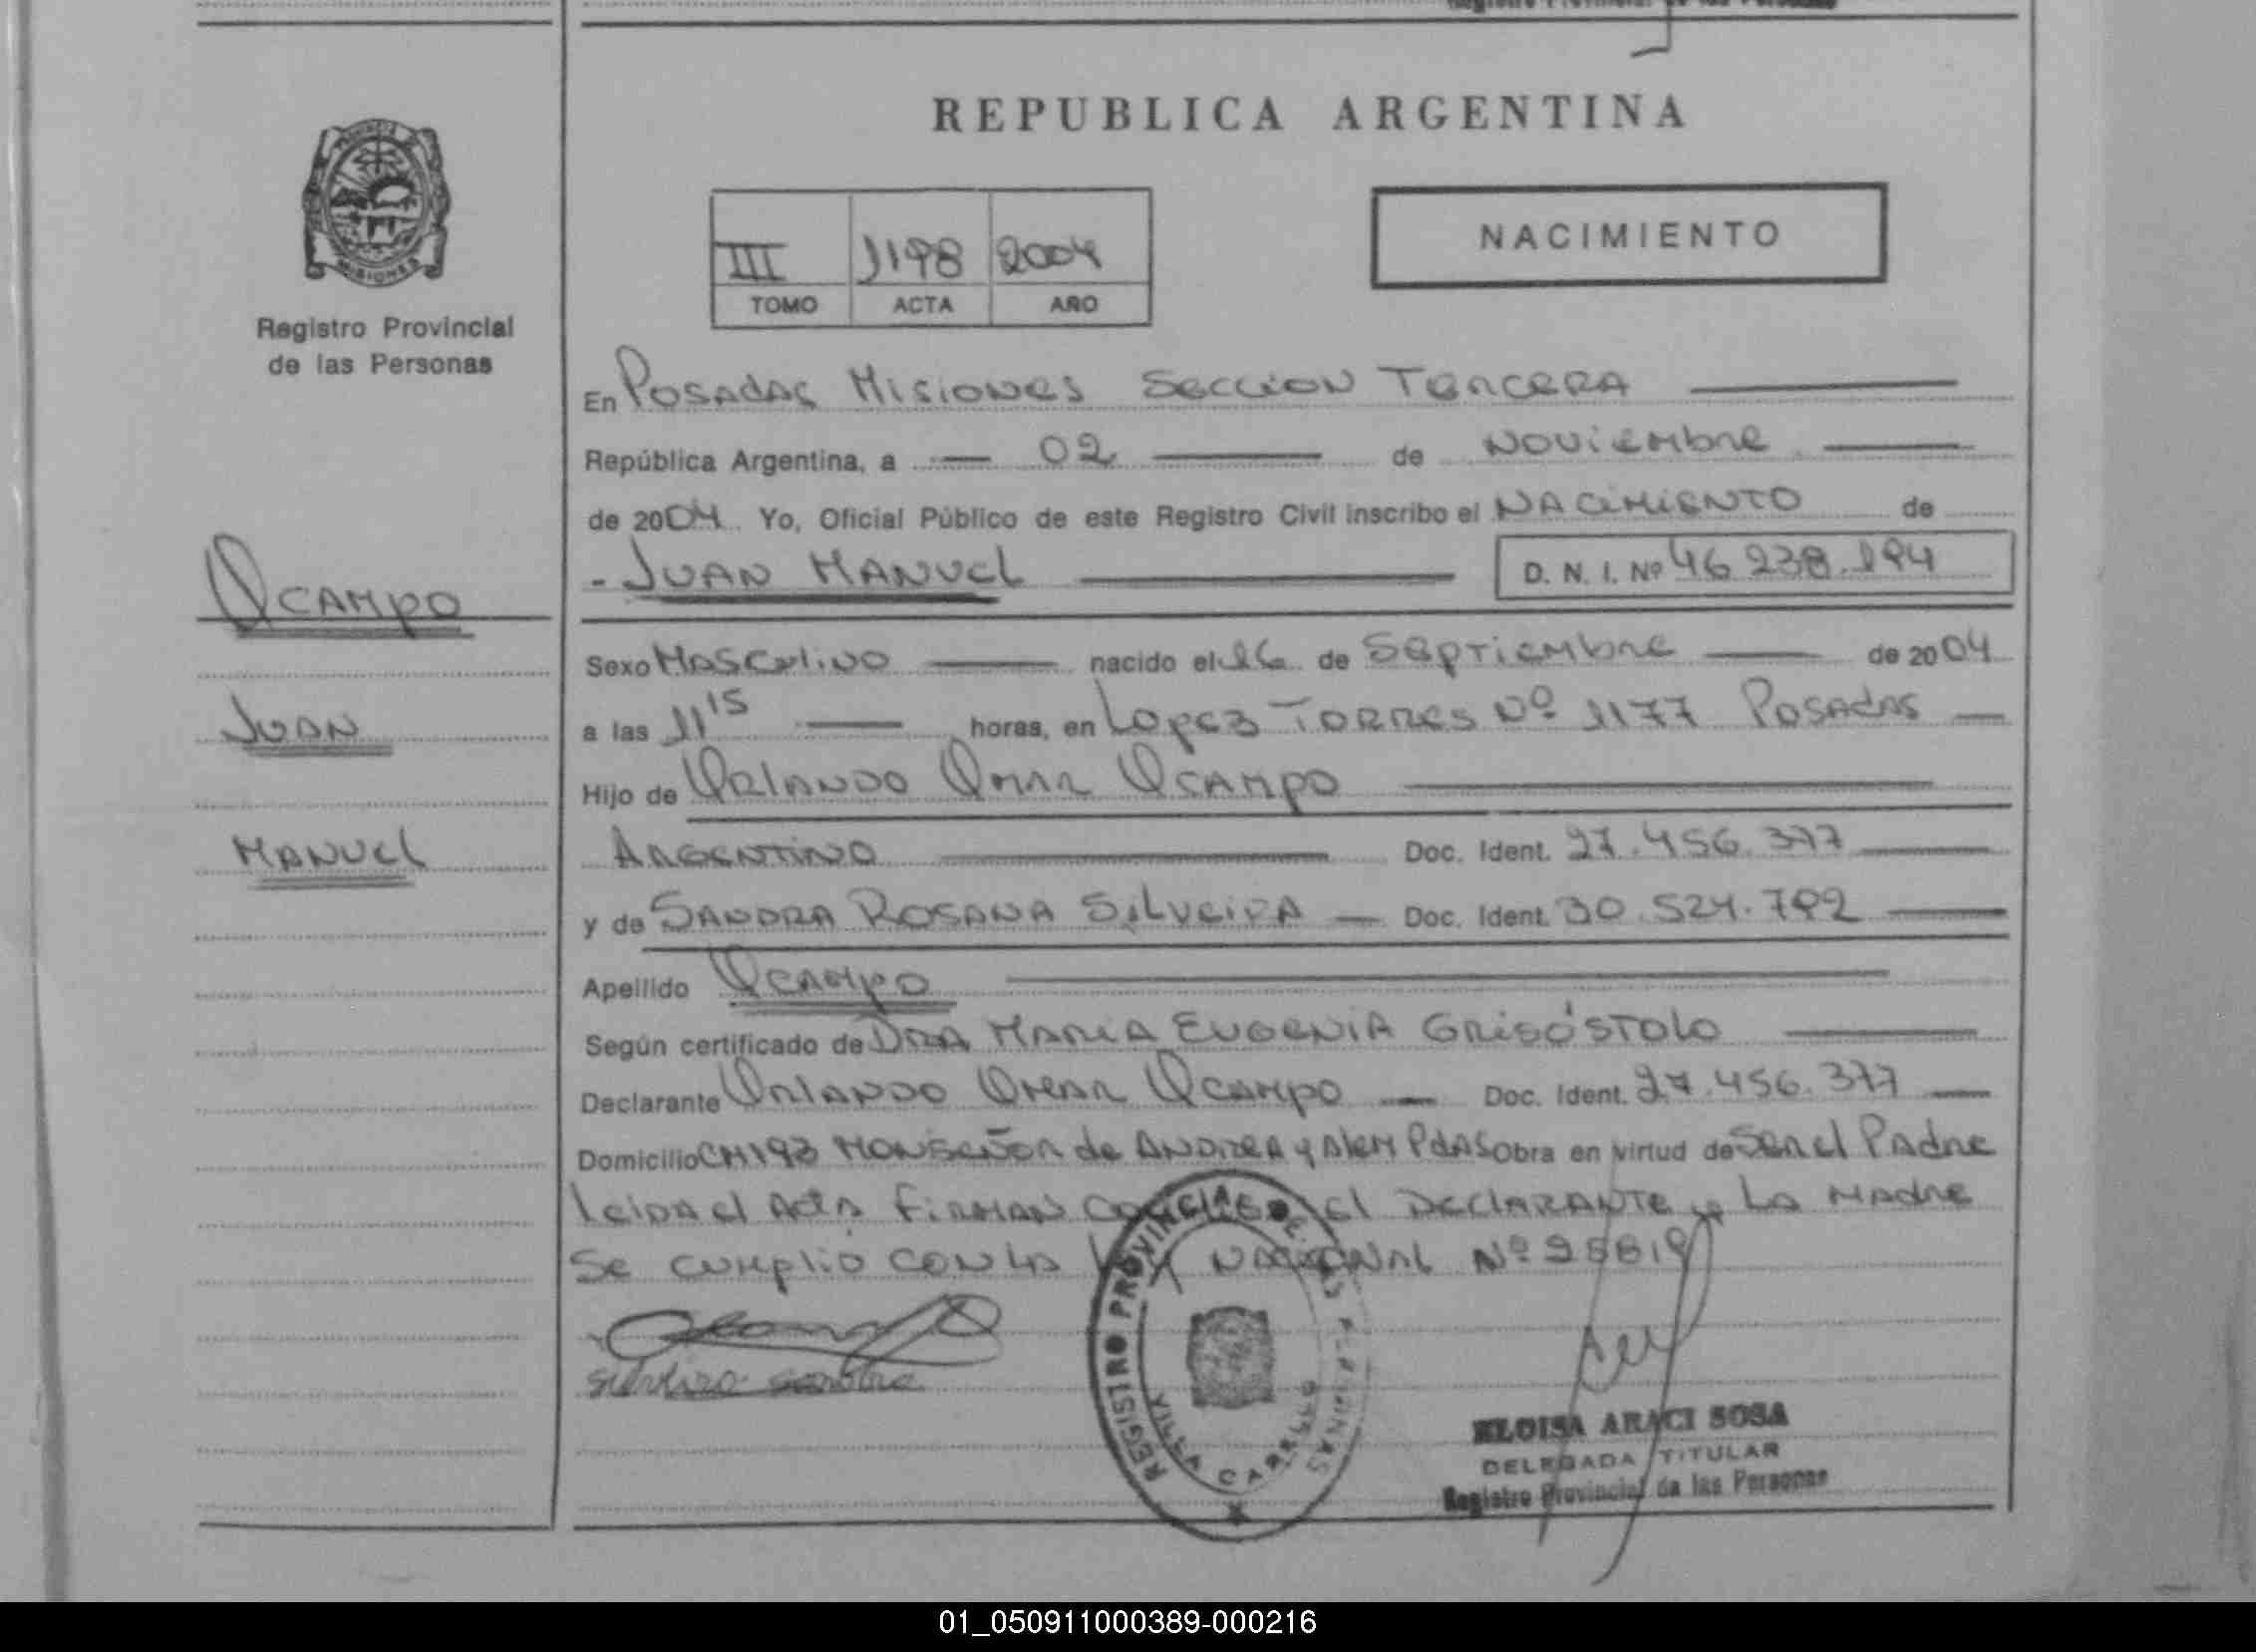 REPUBLICA ARGENTINA
NACIMIENTO
III 1198 2004
TOMO ACTA AÑO
MISIONES
Registro Provincial
de las Personas
Ocampo
Juan
Manuel
En Posadas Misiones Seccion Tercera
República Argentina, a 02 de Noviembre
de 2004. Yo, Oficial Público de este Registro Civil inscribo el NACIMIENTO de
- Juan Manuel D. N. I. Nº 46 238.194
Sexo Masculino nacido el 16 de Septiembre de 2004
a las 11 15 horas, en Lopez Torres Nº 1177 Posadas
Hijo de Orlando Omar Ocampo
Argentino Doc. Ident. 27.456.377
y de Sandra Rosana Silveira Doc. Ident. 30.524.792
Apellido Ocampo
Según certificado de Dra Maria Eugenia Grisóstolo
Declarante Orlando Omar Ocampo Doc. Ident. 27.456.377
Domicilio CH193 Monseñor de Andrea y Alem Pdas Obra en virtud de Ser el Padre
leida el Acta Firman el Declarante y La Madre
Se cumplió con la Ley Nacional Nº
REGISTRO PROVINCIAL DE LAS PERSONAS
VILLA CABELLO
ELOISA ARACI SOSA
DELEGADA TITULAR
Registro Provincial de las Personas
01_050911000389-000216